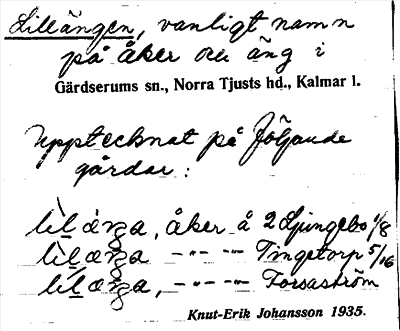 Lillängen, vanligt namn
på åker och äng i
Gärdserums sn., Norra Tjusts hd., Kalmar l.
Upptecknat på följande
gårdar:
åker å 2 Ljungebo 1/8
-"- -"- Tingetorp 5/16
-"- -"- Forsaström
Knut-Erik Johansson 1935.